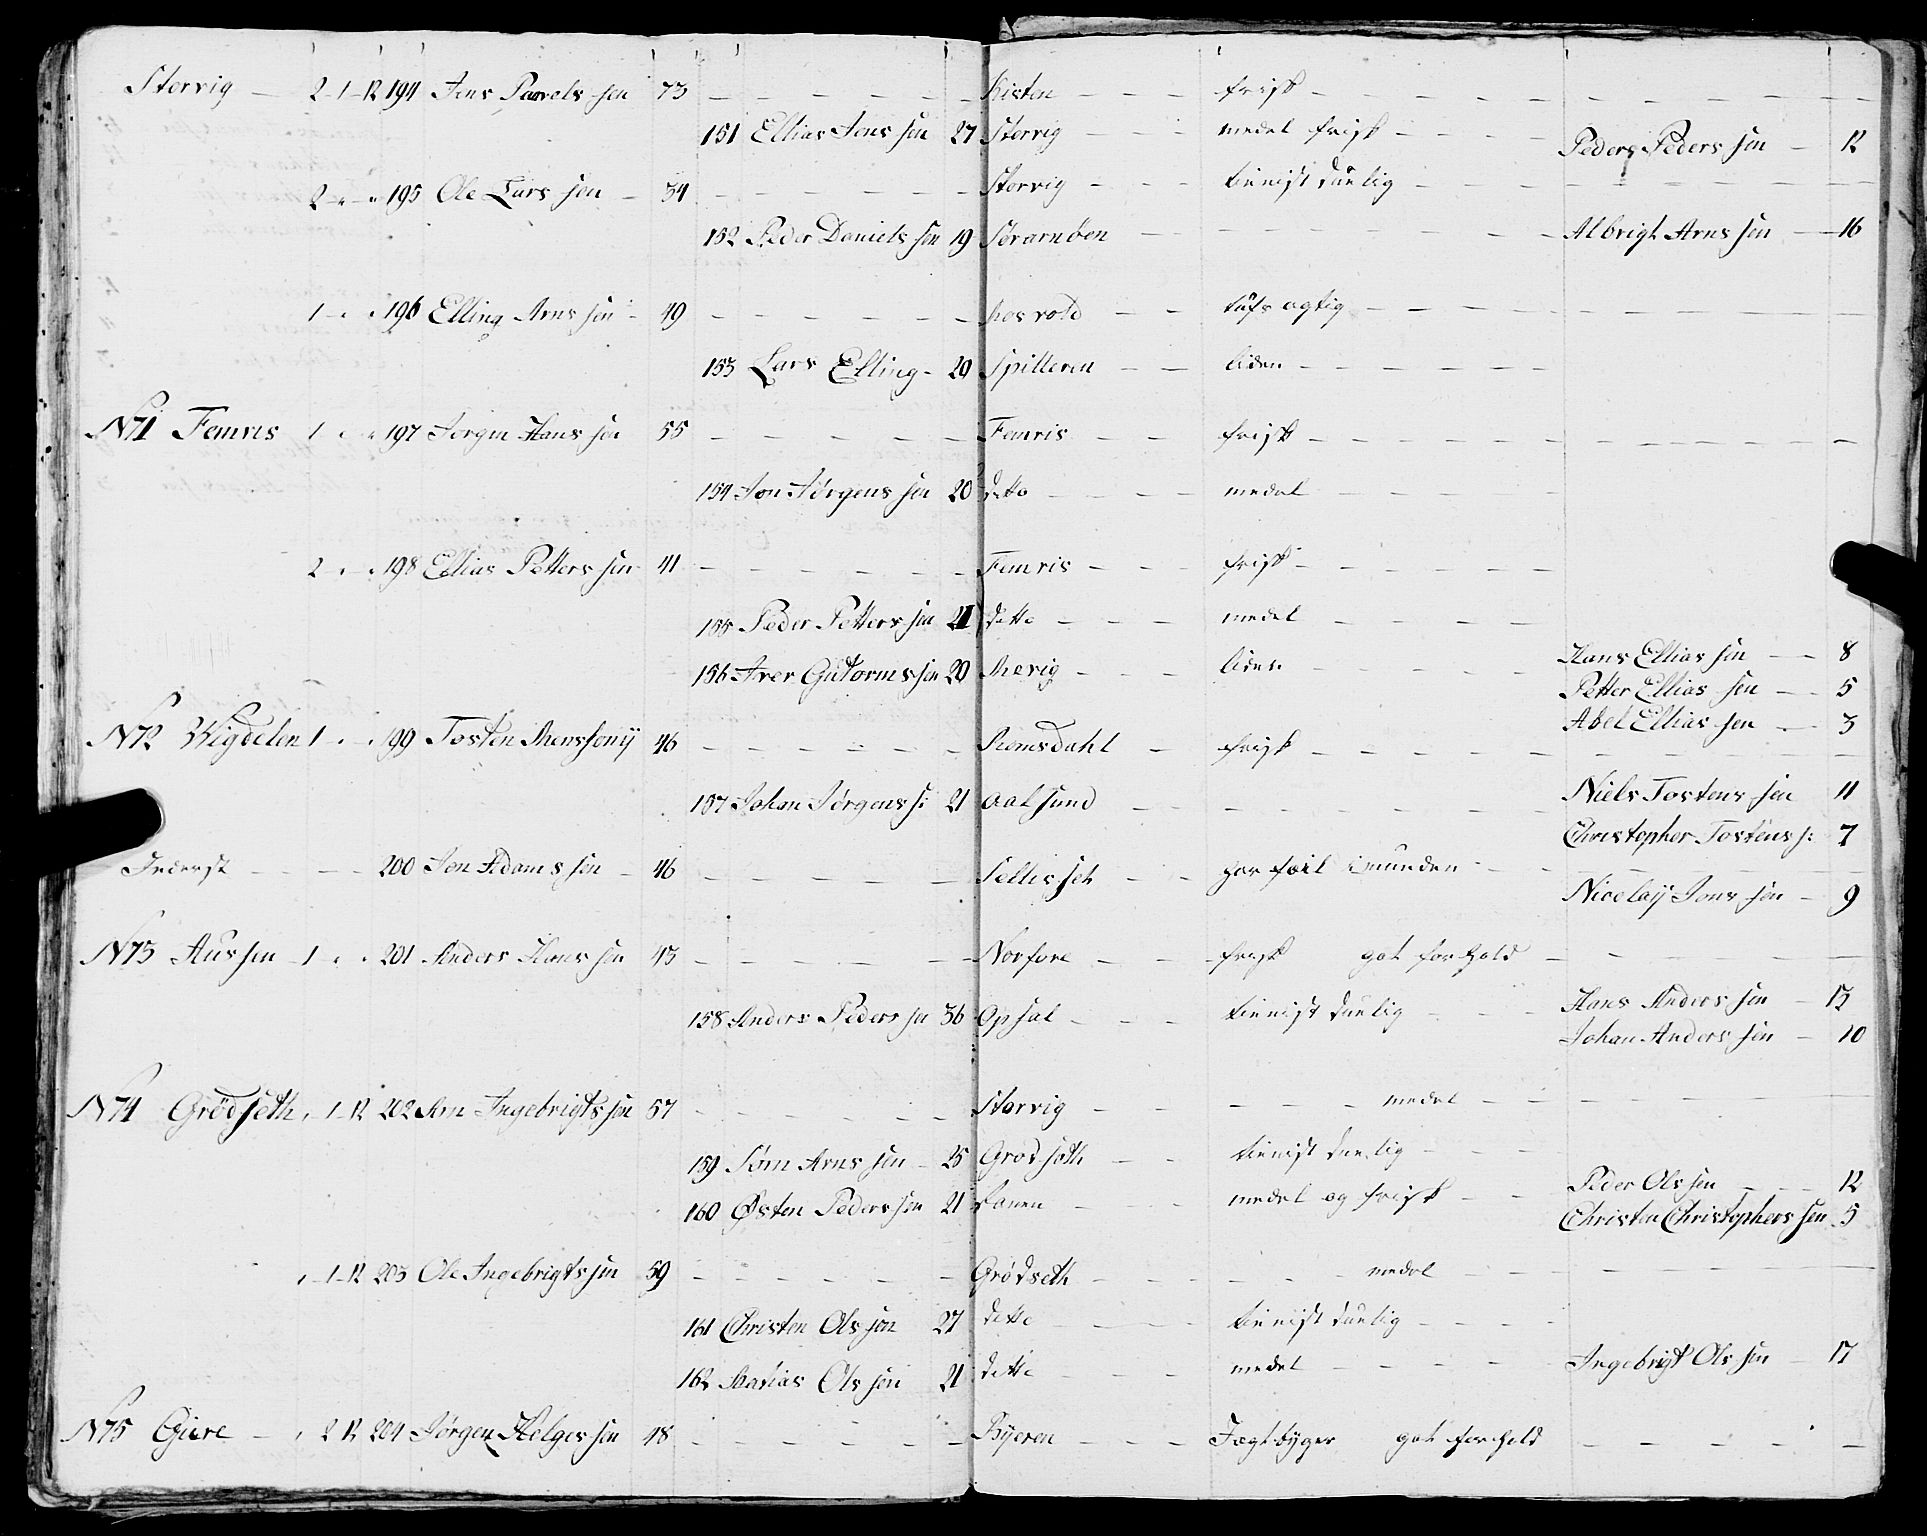 Storvig — 2-1-12 194 Jens Povels sen 73 — Kisten — frisk —
151 Ellias Jens sen 27 Storvig — medel frisk — Peder Peders sen — 12
2 " " 195 Ole Lars sen — 54 — Storvig — tienist duelig —
152 Peder Daniels sen 19 Sørarnøen — Albrigt Arns sen — 16
1 " " 196 Elling Arns sen - 49 — — agtig —
153 Lars Elling - 29 Spilleren — liden —
N71 Femris 1 " " 197 Jørgen Hans sen 55 — Femris — frisk —
154 Jon Jørgens sen 20 detto — medel —
2 " " 198 Ellias Petters sen 41 — Femris — frisk —
155 Peder Petters sen 21 detto — medel —
156 Iver Gutorms sen 20 — liden — Hans Ellias sen — 8
Petter Ellias sen — 5
Abel Ellias sen — 3
N72 Wigdelen 1 " " 199 Tosten 46 — Romsdahl — frisk —
157 Johan Jørgens s: 21 Aalsund — Niels Tostens sen 11
Christopher Tostens s: 7
Inderst — 200 Jon Adams sen — 46 — — har feil i munden —
Nicolaij Jons sen — 9
N73 Aussen 1 " " 201 Anders Hans sen 43 — Norfore — frisk got forhold —
158 Anders Peders sen 36 Opsal — tienist duelig — Hans Anders sen — 13
Johan Anders sen — 10
N74 Grødseth " 1-12 202 Arn Ingebrigts sen 57 — Storvig — medel —
159 Søm Arns sen — 25 Grødseth — tienist duelig —
160 Østen Peders sen 21 — medel og frisk — Peder Ols sen — 12
Christen Christophers sen 5
" 1-12 203 Ole Ingebrigts sen 59 — Grødseth — medel —
161 Christen Ols sen 27 detto — tienist duelig —
162 Ols sen 21 detto — medel — Ingebrigt Ols sen — 17
N75 Giere — " 2 12 204 Jørgen Helges sen 48 — Byeren — Jægtbyger got forhold —